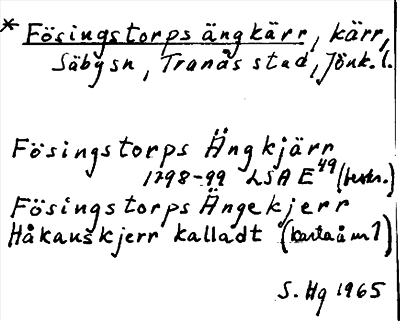 * Fösingstorps ängkärr, kärr,
Säby sn, Tranås stad, Jönk. l.
Fösingstorps Ängkjärr
1798-99 LSA E 49 (beskr.)
Fösingstorps Ängekjerr
Håkanskjerr kalladt (karta å nr 1)
S. Hg 1965